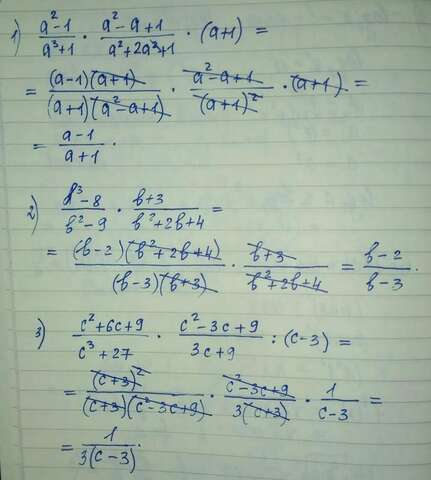 1) (a²-1)/(a³+1) · (a²-a+1)/(a²+2a³+1) · (a+1) =
= (a-1)(a+1)/((a+1)(a²-a+1)) · (a²-a+1)/(a+1)² · (a+1) =
= (a-1)/(a+1) .
2) (b³-8)/(b²-9) · (b+3)/(b²+2b+4) =
= (b-2)(b²+2b+4)/((b-3)(b+3)) · (b+3)/(b²+2b+4) = (b-2)/(b-3) .
3) (c²+6c+9)/(c³+27) · (c²-3c+9)/(3c+9) : (c-3) =
= (c+3)²/((c+3)(c²-3c+9)) · (c²-3c+9)/(3(c+3)) · 1/(c-3) =
= 1/(3(c-3)) .